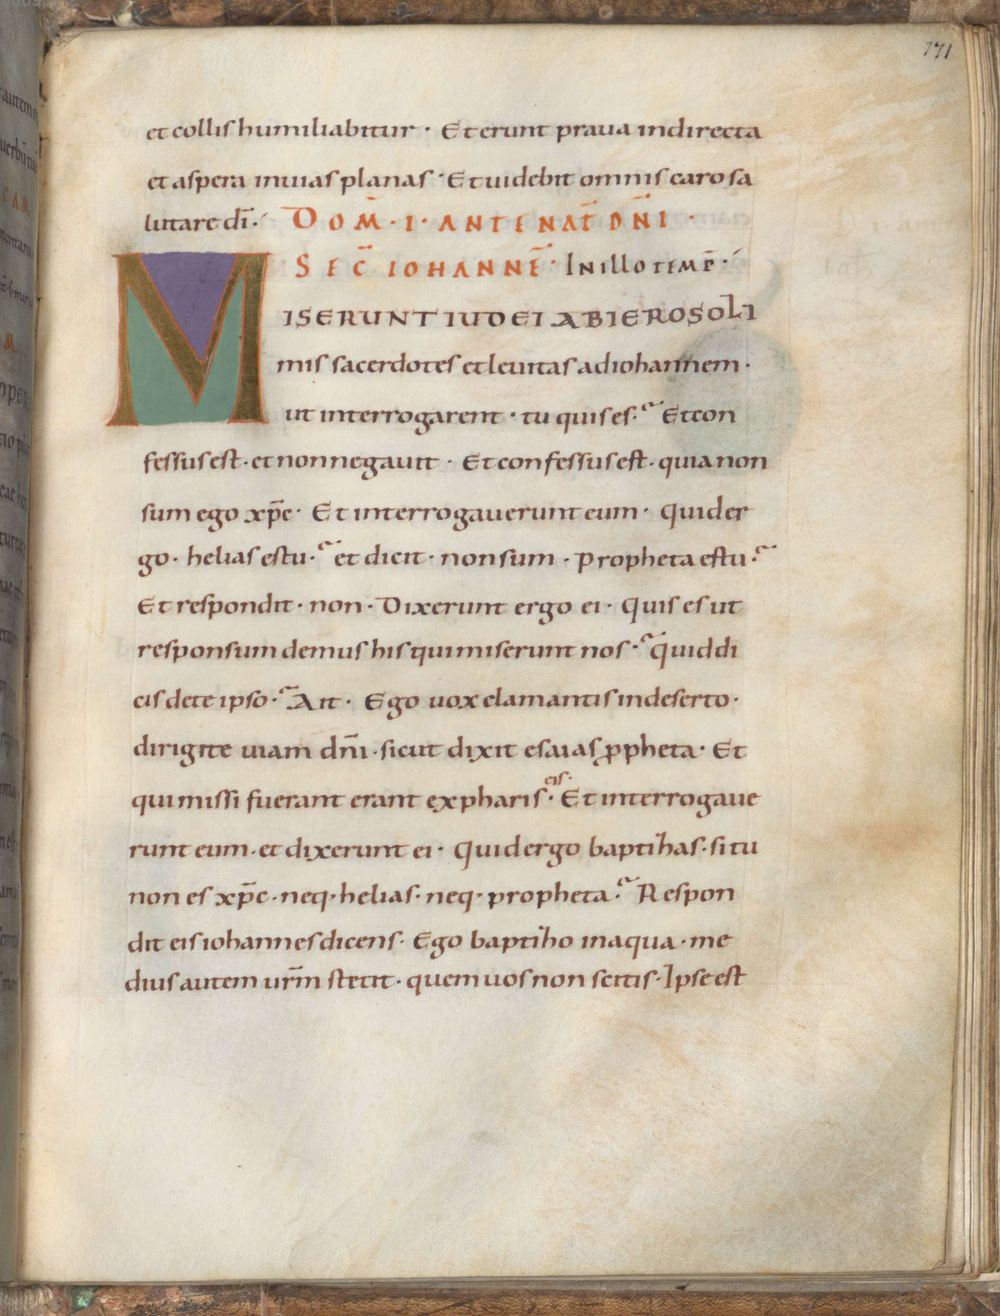 171
et collis humiliabitur · Et erunt praua indirecta
et aspera inuias planas · Et uidebit omnis caro sa
lutare dī · DOM̄ · I · ANTE NAT̄ DN̄I ·
SEC̄ IOHANNĒ · In illo temp̄ ·
MISERUNT IUDEI AB IEROSOLI
mis sacerdotes et leuitas ad iohannem ·
ut interrogarent · tu quis es · Et con
fessus est · et non negauit · Et confessus est · quia non
sum ego xp̄c · Et interrogauerunt eum · Quid er
go · helias es tu · et dicit · non sum · Propheta es tu ·
Et respondit · non · Dixerunt ergo ei · Quis es ut
responsum demus his qui miserunt nos · Quid di
cis de te ipso · Ait · Ego uox clamantis in deserto ·
dirigite uiam dn̄i · sicut dixit esaias ꝓpheta · Et
qui missi fuerant erant ex pharis eis · Et interrogaue
runt eum · et dixerunt ei · Quid ergo baptizas · si tu
non es xp̄c · neq · helias · neq · propheta · Respon
dit eis iohannes dicens · Ego baptizo in aqua · me
dius autem ur̄m stetit · quem uos non scitis · Ipse est